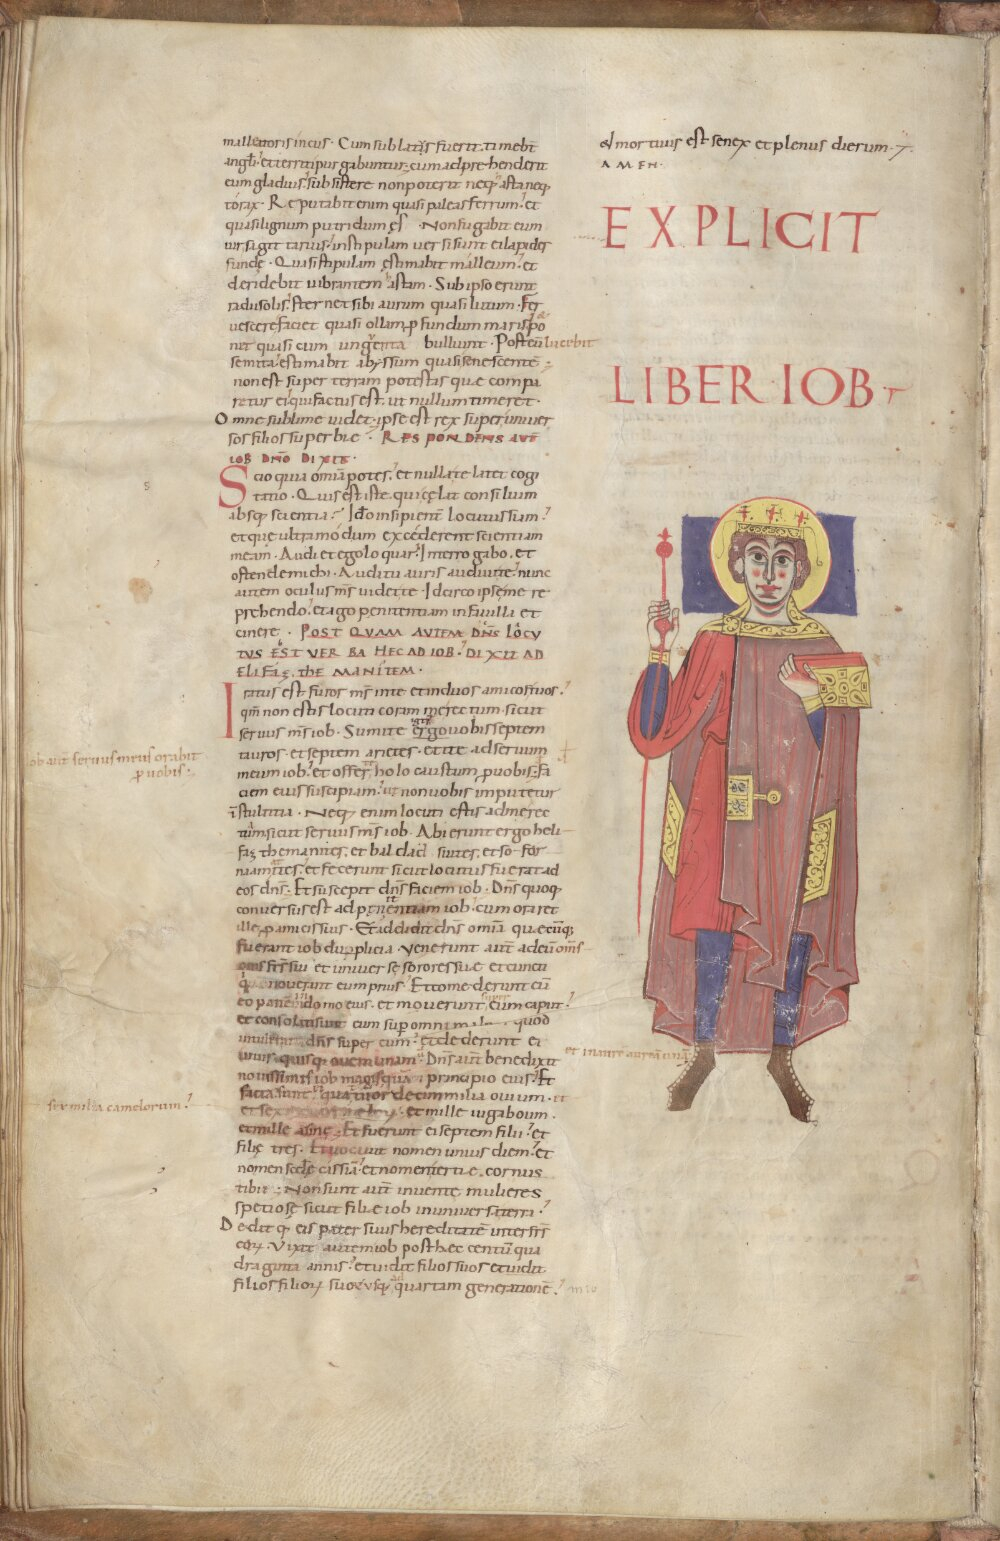 malleatoris incus · Cum sublatus fuerit timebt
angli · et territi purgabuntur · cum adprehenderit
eum gladius · subsistere non poterit neq; asta neq;
torax · Reputabit enim quasi paleas ferrum · et
quasi lignum putridum es · Non fugabit eum
vir sagittarius · in stipulam versi sunt ei lapides
fundę · Quasi stipulam estimabit malleum · et
deridebit vibrantem astam · Sub ipso erunt
radii solis · sternet sibi aurum quasi lutum · Fer
vescere faciet quasi ollam pfundum maris · po
net quasi cum ungenta bulliunt · Post eū lucebit
semita · estimabit abyssum quasi senescentē ·
non est super terram potestas quę compa
retur ei qui factus est · ut nullum timeret ·
Omne sublime videt · ipse est rex super univer
sos filios superbię · RESPONDENS AUTĒ
IOB DN̄O DIXIT ·
Scio quia omīa potes · et nulla te latet cogi
tatio · Quis est iste qui cęlat consilium
absq; scientia · Ido insipienter locutus sum ·
et quę ultra modum excederent scientiam
meam · Audi et ego loquar · Interrogabo · et
ostende michi · Auditu auris audivi te · nunc
autem oculus m̄s videt te · Idcirco ipse me re
prehendo · et ago penitentiam in favilla et
cinere · POST QUAM AUTEM DN̄S LOCU
TUS EST VERBA HEC AD IOB · DIXIT AD
ELIFAZ THEMANITEM ·
Iratus est furor m̄s in te et in duos amicos tuos ·
qm̄ non estis locuti coram me rectum · sicut
servus m̄s iob · Sumite ergo vobis septem
tauros · et septem arietes · et ite ad servum
meum iob · et offerte holocaustum p vobis · fa
ciem eius suscipiam · ut non vobis imputetur
īstultitia · Neq; enim locuti estis ad me rec
tum sicut servus m̄s iob · Abierunt ergo heli
faz themanites · et baldad suites · et sofor
niamītes · et fecerunt sicut locutus fuerat ad
eos dn̄s · Et suscepit dn̄s faciem iob · Dn̄s quoq;
conversus est ad penitentiam iob · cum oraret
ille p amicis suis · Et addidit dn̄s omīa quecūq;
fuerant iob duplicia · Venerunt aut̄ ad eū oms
oms frs̄ sui et universę sorores suę et cuncti
qui noverant eum prius · Et comederunt cū
eo panē in domo eius · et moverunt super eum caput ·
et consolati sunt eum sup omni malo quod
intulerat dn̄s super eum · et dederunt ei
unusquisq; ovem unam · Dn̄s aut̄ benedixit
novissimis iob magis quā principio eius · Et
facta sunt ei quattuordecim milia ovium · et
et mille iugaboum ·
et mille asinę · Et fuerunt ei septem filii · et
filię tres · Et vocavit nomen unius diem · et
nomen scdę cassiā · et nomen tertię · cornus
tibii · Non sunt aut̄ inventę mulieres
spetiosę sicut filię iob in universa terra ·
Dedit q; eis pater suus hereditatē inter frs̄
eoꝝ · Vixit autem iob post hęc centū qua
draginta annis · et vidit filios suos et vidit
filios filioꝝ suoꝝ usq; ad quartam generationē ·
iob aut̄ servus meus orabit
p vobis ·
sex milia camelorum ·
et inaure aureā unā
et mortuus est senex et plenus dierum ·
AMEN ·
EXPLICIT
LIBER · IOB ·